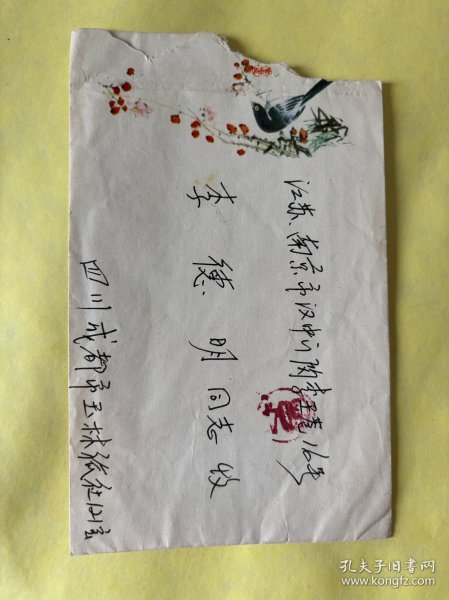 江苏.南京市汉中门
16号
李德明同志收
四川成都市玉林
121室
孔夫子旧书网
www.kongfz.com